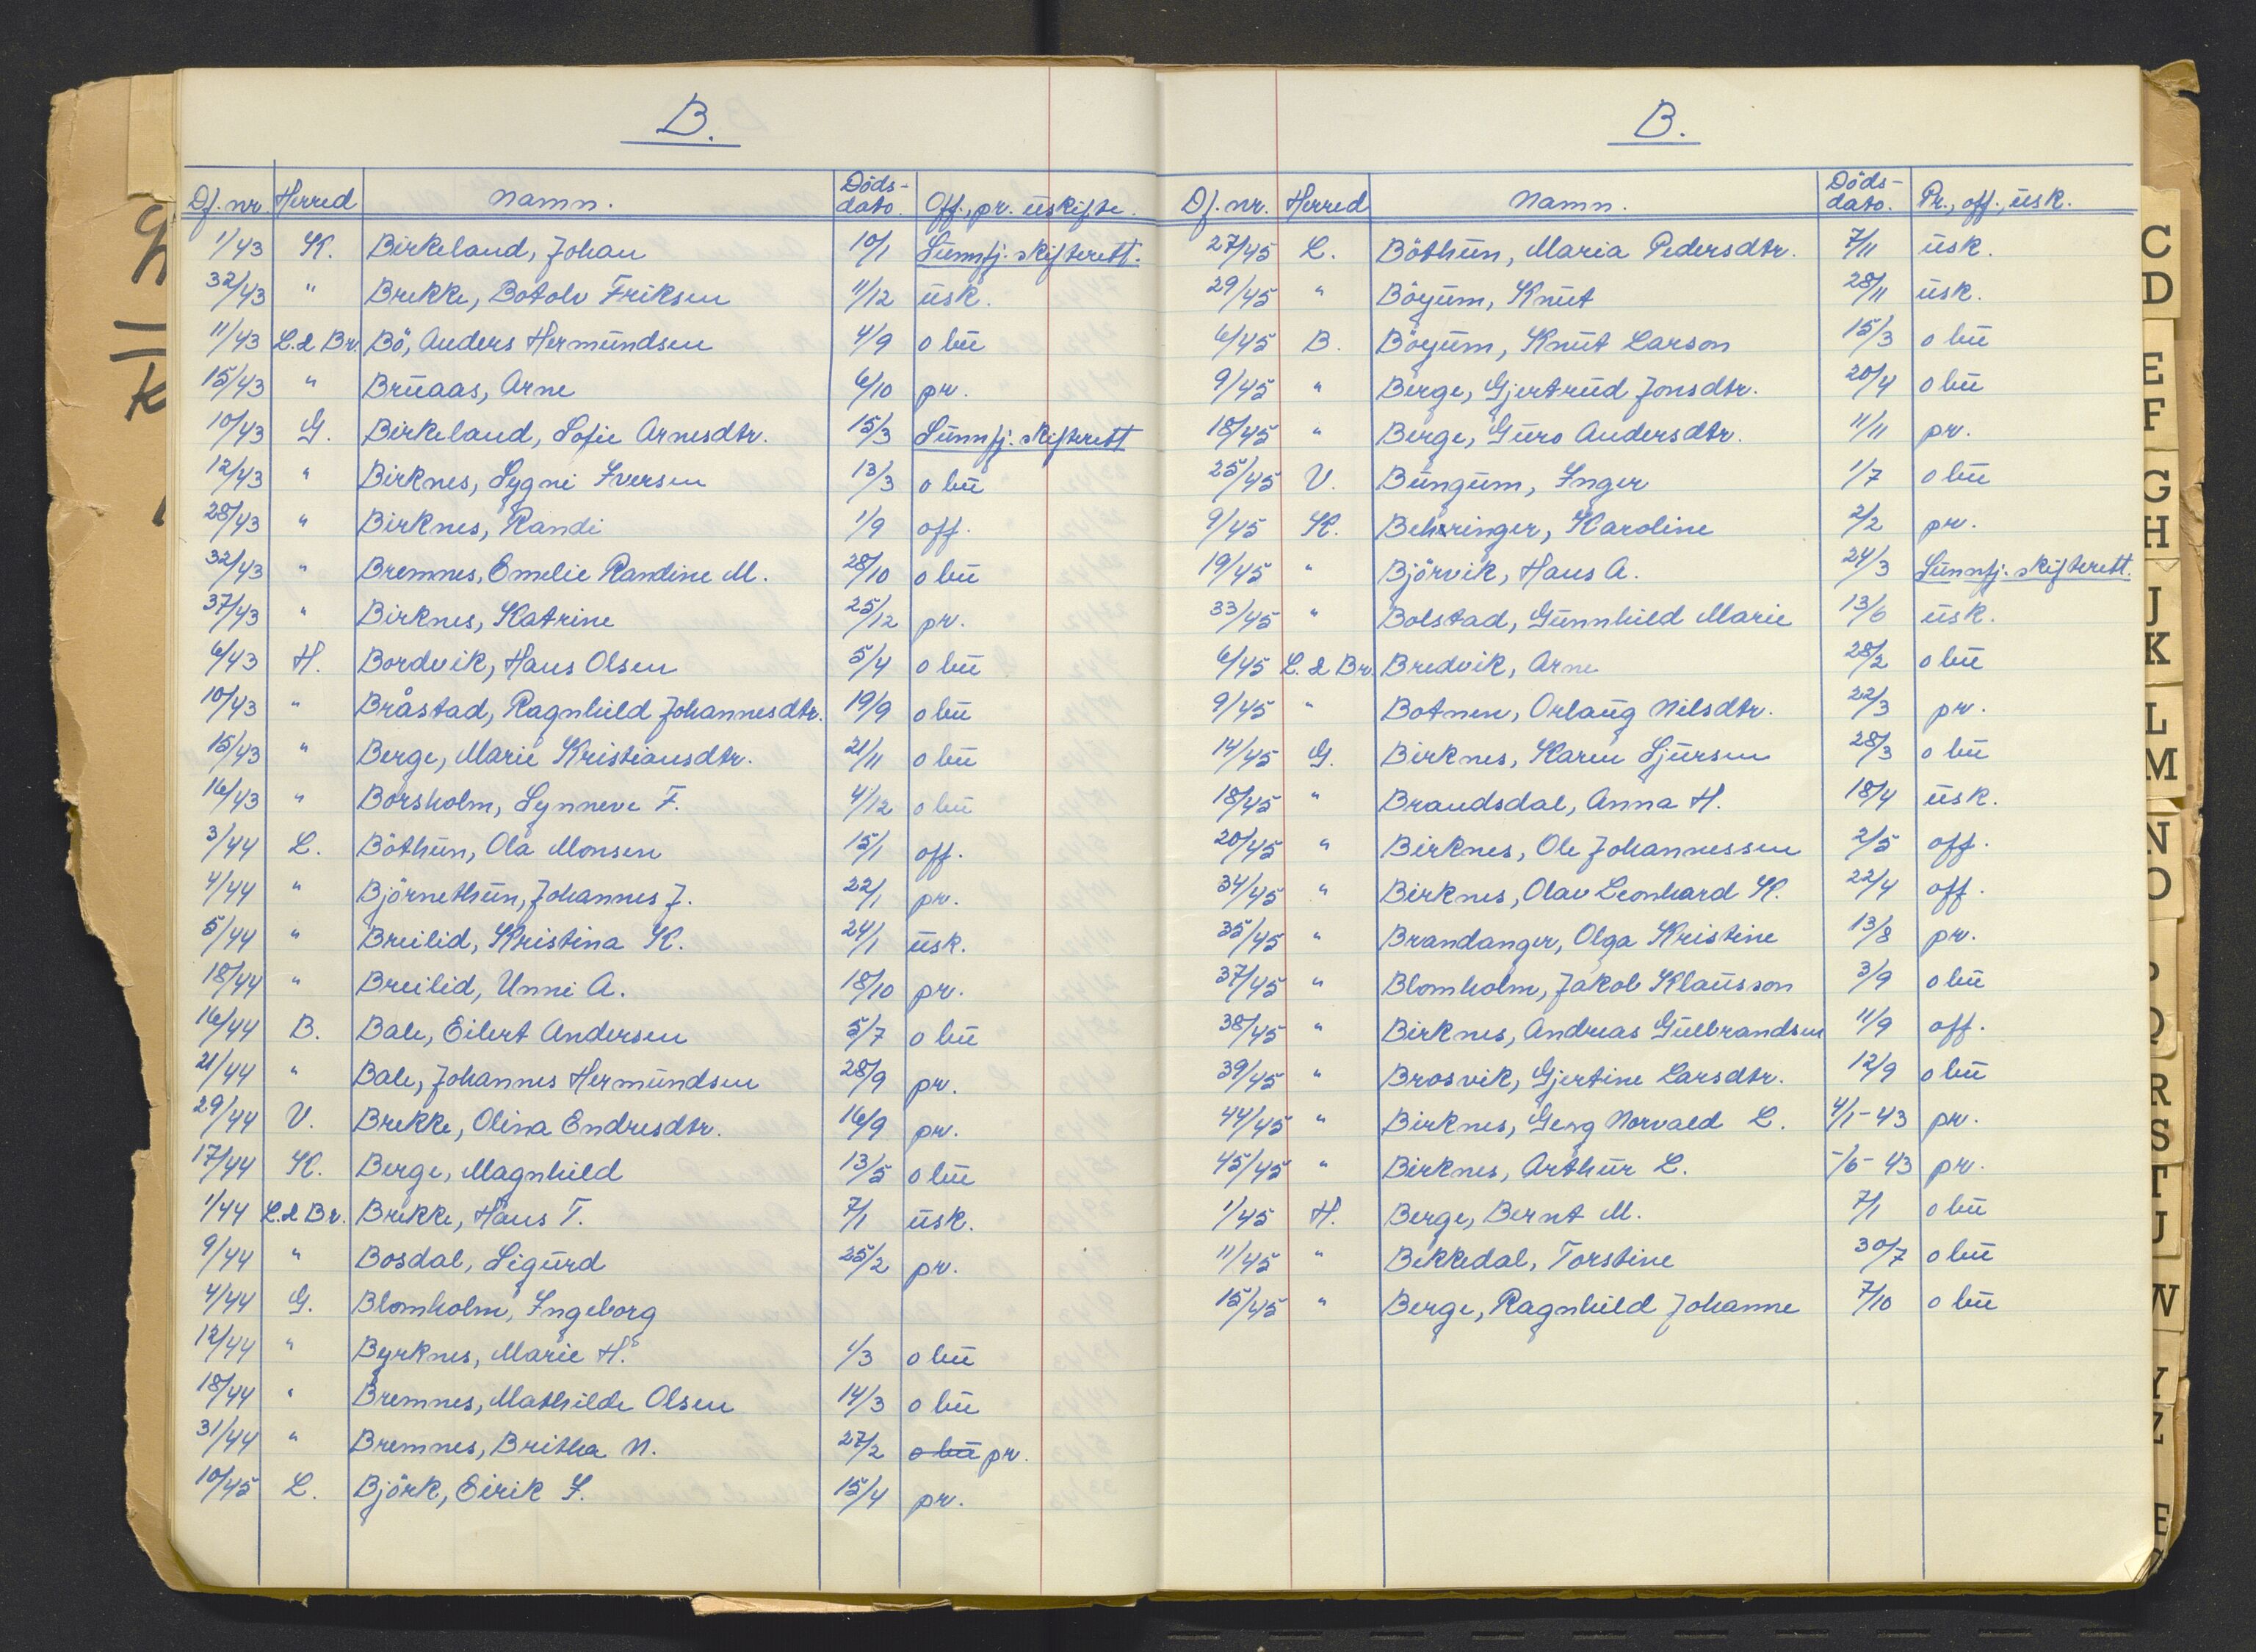 B.
Df. nr. Herred Namn. Döds-dato. Off., pr. uskifte.
1/43 K. Birkeland, Johan 10/1 Sunnfj. skifterett.
32/43 " Brekke, Botolv Eriksen 11/12 usk.
11/43 L. & Br. Bö, Anders Hermundsen 4/9 o bu
15/43 " Bruaas, Arne 6/10 pr.
10/43 G. Birkeland, Sofie Arnesdtr. 15/3 Sunnfj. skifterett
12/43 " Birknes, Sygni Iversen 13/3 o bu
28/43 " Birknes, Randi 1/9 off.
32/43 " Bremnes, Emelie Randine M. 28/10 o bu
37/43 " Birknes, Katrine 25/12 pr.
6/43 H. Bordvik, Hans Olsen 5/4 o bu
10/43 " Bråstad, Ragnhild Johannesdtr. 19/9 o bu
15/43 " Berge, Marie Kristiansdtr. 21/11 o bu
16/43 " Borsholm, Synneve F. 4/12 o bu
3/44 L. Böthun, Ola Monsen 15/1 off.
4/44 " Björnethun, Johannes J. 22/1 pr.
5/44 " Breilid, Kristina K. 24/1 usk.
18/44 " Breilid, Unni A. 18/10 pr.
16/44 B. Bale, Eilert Andersen 5/7 o bu
21/44 " Bale, Johannes Hermundsen 28/9 pr.
29/44 V. Brekke, Olina Endresdtr. 16/9 pr.
17/44 K. Berge, Magnhild 13/5 o bu
1/44 L. & Br. Brekke, Hans T. 7/1 usk.
9/44 " Bosdal, Sigurd 25/2 pr.
4/44 G. Blomholm, Ingeborg
12/44 " Byrknes, Marie H. 1/3 o bu
18/44 " Bremnes, Mathilde Olsen 14/3 o bu
31/44 " Bremnes, Britha N. 27/2 o bu pr.
10/45 L. Björk, Eirik I. 15/4 pr.
B.
Df. nr. Herred Namn. Döds-dato. Pr., off., usk.
27/45 L. Böthun, Maria Pedersdtr. 7/11 usk.
29/45 " Böyum, Knut 28/11 usk.
6/45 B. Böyum, Knut Larson 15/3 o bu
9/45 " Berge, Gjertrud Jonsdtr. 20/4 o bu
18/45 " Berge, Guro Andersdtr. 11/11 pr.
25/45 V. Bungum, Inger 1/7 o bu
9/45 K. Behringer, Karoline 2/2 pr.
19/45 " Björvik, Hans A. 24/3 Sunnfj. skifterett.
33/45 " Bolstad, Gunnhild Marie 13/6 usk.
6/45 L. & Br. Bredvik, Arne 28/2 o bu
9/45 " Botnen, Orlaug Nilsdtr. 22/3 pr.
14/45 G. Birknes, Karen Sjursen 28/3 o bu
18/45 " Brandsdal, Anna H. 18/4 usk.
20/45 " Birknes, Ole Johannessen 2/5 off.
34/45 " Birknes, Olav Leonhard K. 22/4 off.
35/45 " Brandanger, Olga Kristine 13/8 pr.
37/45 " Blomholm, Jakob Klausson 3/9 o bu
38/45 " Birknes, Andreas Gulbrandsen 11/9 off.
39/45 " Brosvik, Gjertine Larsdtr. 12/9 o bu
44/45 " Birknes, Georg Norvald L. 4/1-43 pr.
45/45 " Birknes, Arthur L. -/6-43 pr.
1/45 H. Berge, Bernt M. 7/1 o bu
11/45 " Bekkedal, Torstine 30/7 o bu
15/45 " Berge, Ragnhild Johanne 7/10 o bu
C
D
E
F
G
H
J
K
L
M
N
O
Q
R
S